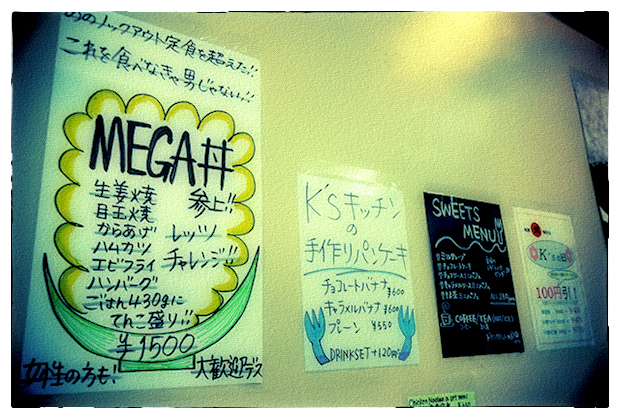 あのノックアウト定食を超えた!!
これを食べなきゃ男じゃないッ!!
MEGA丼
参上!!
生姜焼
目玉焼
からあげ
ハムカツ
エビフライ
ハンバーグ
ごはん430gに
てんこ盛り!!
レッツ
チャレンジ!!
¥1500
女性の方も、
大歓迎デス
K'sキッチン
の
手作りパンケーキ
チョコレートバナナ ¥600
キャラメルバナナ ¥600
プレーン ¥550
DRINKSET+120円
SWEETS
MENU
COFFEE/TEA
100円引!